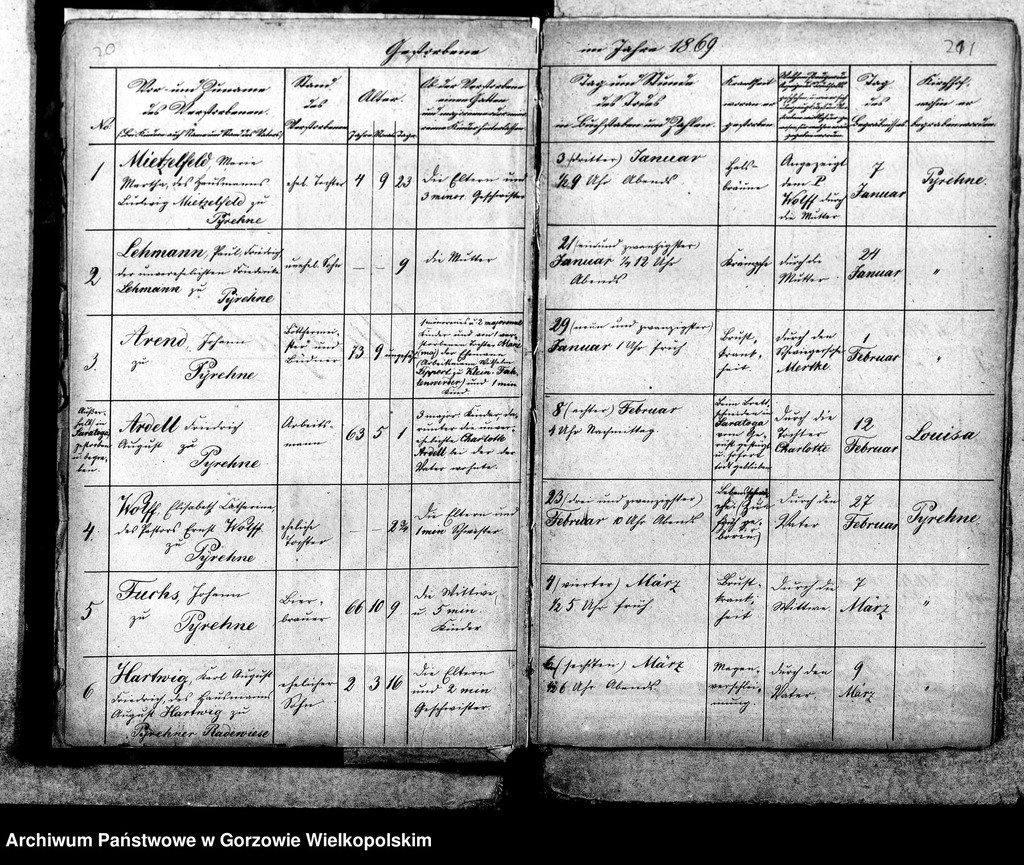 20
Gestorbene
im Jahre 1869
201
No.
Vor- und Zuname
des Verstorbenen.
Stand
des
Verstorbenen
Alter.
Jahre Monate Tage
Ob der Verstorbene
einen Gatten
Tag und Stunde
des Todes
in Buchstaben und Zahlen.
Krankheit
woran er
gestorben
Tag
des
Begräbnisses
Kirchhof,
worin er
begraben worden
1
Mietzelfeld, Marie
Martha, des Hausmanns
Ludwig Mietzelfeld zu
Pyrehne
ehel. Tochter
4 9 23
die Eltern und
3 minor. Geschwister
3 (dritter) Januar
½ 9 Uhr Abends
Hals-
bräune
Angezeigt
dem P.
Wolff durch
die Mutter
7
Januar
Pyrehne.
2
Lehmann, Paul, Friedrich
der unverehelichten Friederike
Lehmann zu
Pyrehne
unehel. Sohn
— — 9
die Mutter
21 (einundzwanzigster)
Januar ½ 12 Uhr
Abends
Krämpfe
durch die
Mutter
24
Januar
"
3.
Arend, Johann
zu
Pyrehne
Böttchermei-
ster und
Büdner
73 9
29 (neun und zwanzigster)
Januar 1 Uhr früh
Brust-
krank-
heit
durch den
Schwiegersohn
Mertke
1
Februar
"
Außer-
halb in
Saratoga
gestorben
u. begra-
ben.
Ardell Friedrich
August zu
Pyrehne
Arbeits-
mann
63 5 1
3 major. Kinder, da-
runter die unver-
ehelichte Charlotte
Ardell bei der der
Vater wohnte.
8 (achter) Februar
4 Uhr Nachmittag.
Beim Brett-
schneiden in
Saratoga
vom Ge-
rüst gestürzt
u. sofort
todt geblieben
durch die
Tochter
Charlotte
12
Februar
Louisa
4.
Wolff, Elisabeth Catharina,
des Pastors Ernst Wolff
zu
Pyrehne
eheliche
Tochter
— —
Die Eltern und
1 min Schwester.
23 (drei und zwanzigster)
Februar 10 Uhr Abends
durch den
Vater
27
Februar
Pyrehne
5
Fuchs, Johann
zu
Pyrehne
Bier-
brauer
66 10 9
die Wittwe
u. 5 min.
Kinder
4 (vierter) März
½ 5 Uhr früh
Brust-
krank-
heit
durch die
Wittwe.
7
März
"
6
Hartwig, Karl August
Friedrich, des Hausmanns
August Hartwig zu
Pyrehner Radewiese
ehelicher
Sohn
2 3 16
Die Eltern
und 2 min
Geschwister.
6 (sechsten) März
6 Uhr Abends
Magen-
verschlei-
mung.
durch den
Vater.
9
März
"
Archiwum Państwowe w Gorzowie Wielkopolskim